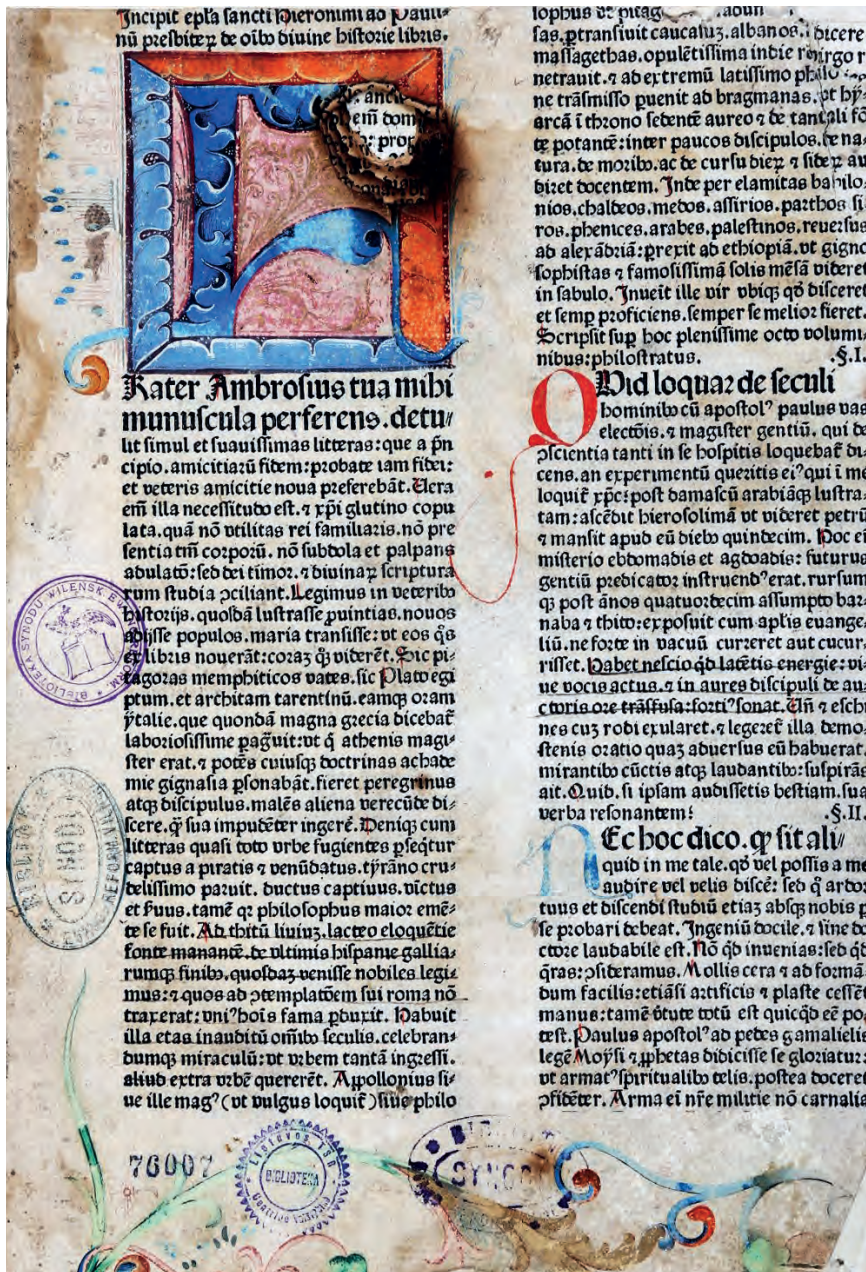 Incipit epła sancti Hieronimi ad Pauli-
nū presbiteꝝ de oībꝰ diuine historie libris.
Frater Ambrosius tua mihi
munuscula perferens. detu/
lit simul et suauissimas litteras: que a pñ
cipio. amicitiarū fidem: probate iam fidei:
et veteris amicitie noua preferebāt. Uera
em̄ illa necessitudo est. ⁊ xp̄i glutino copu
lata. quā nō vtilitas rei familiaris. nō pre
sentia tm̄ corporū. nō subdola et palpans
adulatō: sed dei timor. ⁊ diuinaꝝ scriptura
rum studia ꝯciliant. Legimus in veteribꝰ
historijs. quosdā lustrasse ꝓuintias. nouos
adijsse populos. maria transisse: vt eos q̄s
ex libris nouerāt: coraꝫ qꝫ viderēt. Sic pi-
tagoras memphiticos vates. sic Plato egi
ptum. et architam tarentinū. eamqꝫ oram
ytalie. que quondā magna grecia dicebat̄
laboriosissime pag̃uit: vt q̄ athenis magi-
ster erat. ⁊ potēs cuiusqꝫ doctrinas achade
mie gignasia ꝑsonabāt. fieret peregrinus
atqꝫ discipulus. malēs aliena verecūde di-
scere. q̄ sua impudēter ingerē. Deniqꝫ cum
litteras quasi toto vrbe fugientes ꝑseq̄tur
captus a piratis ⁊ venūdatus. tyrāno cru-
delissimo paruit. ductus captiuus. victus
et s̄uus. tamē qꝛ philosophus maior emē-
te se fuit. Ad thitū liuiuꝫ. lacteo eloquētie
fonte manantē. de vltimis hispanie gallia-
rumqꝫ finibꝰ. quosdaꝫ venisse nobiles legi-
mus: ⁊ quos ad ꝯtemplatōem sui roma nō
traxerat: vniꝰ hoīs fama ꝑduxit. Habuit
illa etas inauditū oīmbꝰ seculis. celebran-
dumqꝫ miraculū: vt vrbem tantā ingressi.
aliud extra vrbē quererēt. Appollonius si-
ue ille magꝰ (vt vulgus loquit̄) siue philo
sas. ꝑtransiuit caucaluꝫ. albanos.
massagethas. opulētissima indie
netrauit. ⁊ ad extremū latissimo
ne trāsmisso ꝑuenit ad bragmanas. vt hy-
arcā ī throno sedentē aureo ⁊ de tantali fō
te potantē: inter paucos discipulos. de na-
tura. de moribꝰ. ac de cursu dieꝝ ⁊ sideꝝ au
diret docentem. Inde per elamitas babilo-
nios. chaldeos. medos. assirios. parthos si
ros. phenices. arabes. palestinos. reuersus
ad alexādriā: ꝑrexit ad ethiopiā. vt gigno
sophistas ⁊ famosissimā solis mēsā videret
in sabulo. Inueīt ille vir vbiqꝫ qđ disceret
et semꝑ proficiens. semper se melior fieret.
Scripsit suꝑ hoc plenissime octo volumi-
nibus: philostratus. .§.I.
Quid loquar de seculi
hominibꝰ cū apostolꝰ paulus vas
electōis. ⁊ magister gentiū. qui de
ꝯscientia tanti in se hospitis loquebat̄ di-
cens. an experimentū queritis eiꝰ qui ī me
loquit̄ xp̄c: post damascū arabiāqꝫ lustra-
tam: ascēdit hierosolimā vt videret petrū
⁊ mansit apud eū diebꝰ quindecim. Hoc eī
misterio ebdomadis et agdoadis: futurus
gentiū predicator instruendꝰ erat. rursum
qꝫ post ānos quatuordecim assumpto bar-
naba ⁊ thito: exposuit cum aplīs euange-
liū. ne forte in vacuū curreret aut cucur-
risset. Habet nescio qđ latētis energie: vi-
ue vocis actus. ⁊ in aures discipuli de au-
ctoris ore trāsfusa: fortiꝰ sonat. Uñ ⁊ eschi
nes cuꝫ rodi exularet. ⁊ legeret̄ illa demo-
stenis oratio quaꝫ aduersus eū habuerat.
mirantibꝰ cūctis atqꝫ laudantibꝰ: suspirās
ait. Quid. si ipsam audissetis bestiam. sua
verba resonantem: .§.II.
Nec hoc dico. ꝙ sit ali/
quid in me tale. qđ vel possis a me
audire vel velis discē: sed q̄ ardor
tuus et discendi studiū etiaꝫ absqꝫ nobis p
se probari debeat. Ingeniū docile. ⁊ sine do
ctore laudabile est. Nō qđ inuenias: sed qđ
q̄ras: ꝯsideramus. Mollis cera ⁊ ad formā
dum facilis: etiāsi artificis ⁊ plaste cessēt
manus: tamē v̄tute totū est quicqđ eē po
test. Paulus apostolꝰ ad pedes gamalielis
legē Moysi ⁊ ꝓphetas didicisse se gloriatur:
vt armatꝰ spiritualibꝰ telis. postea doceret
ꝯfidēter. Arma eī nr̄e militie nō carnalia
BIBLIOTEKA SYNODU WILENSK EWANG REFORM
76007
BIBLIOTEKA